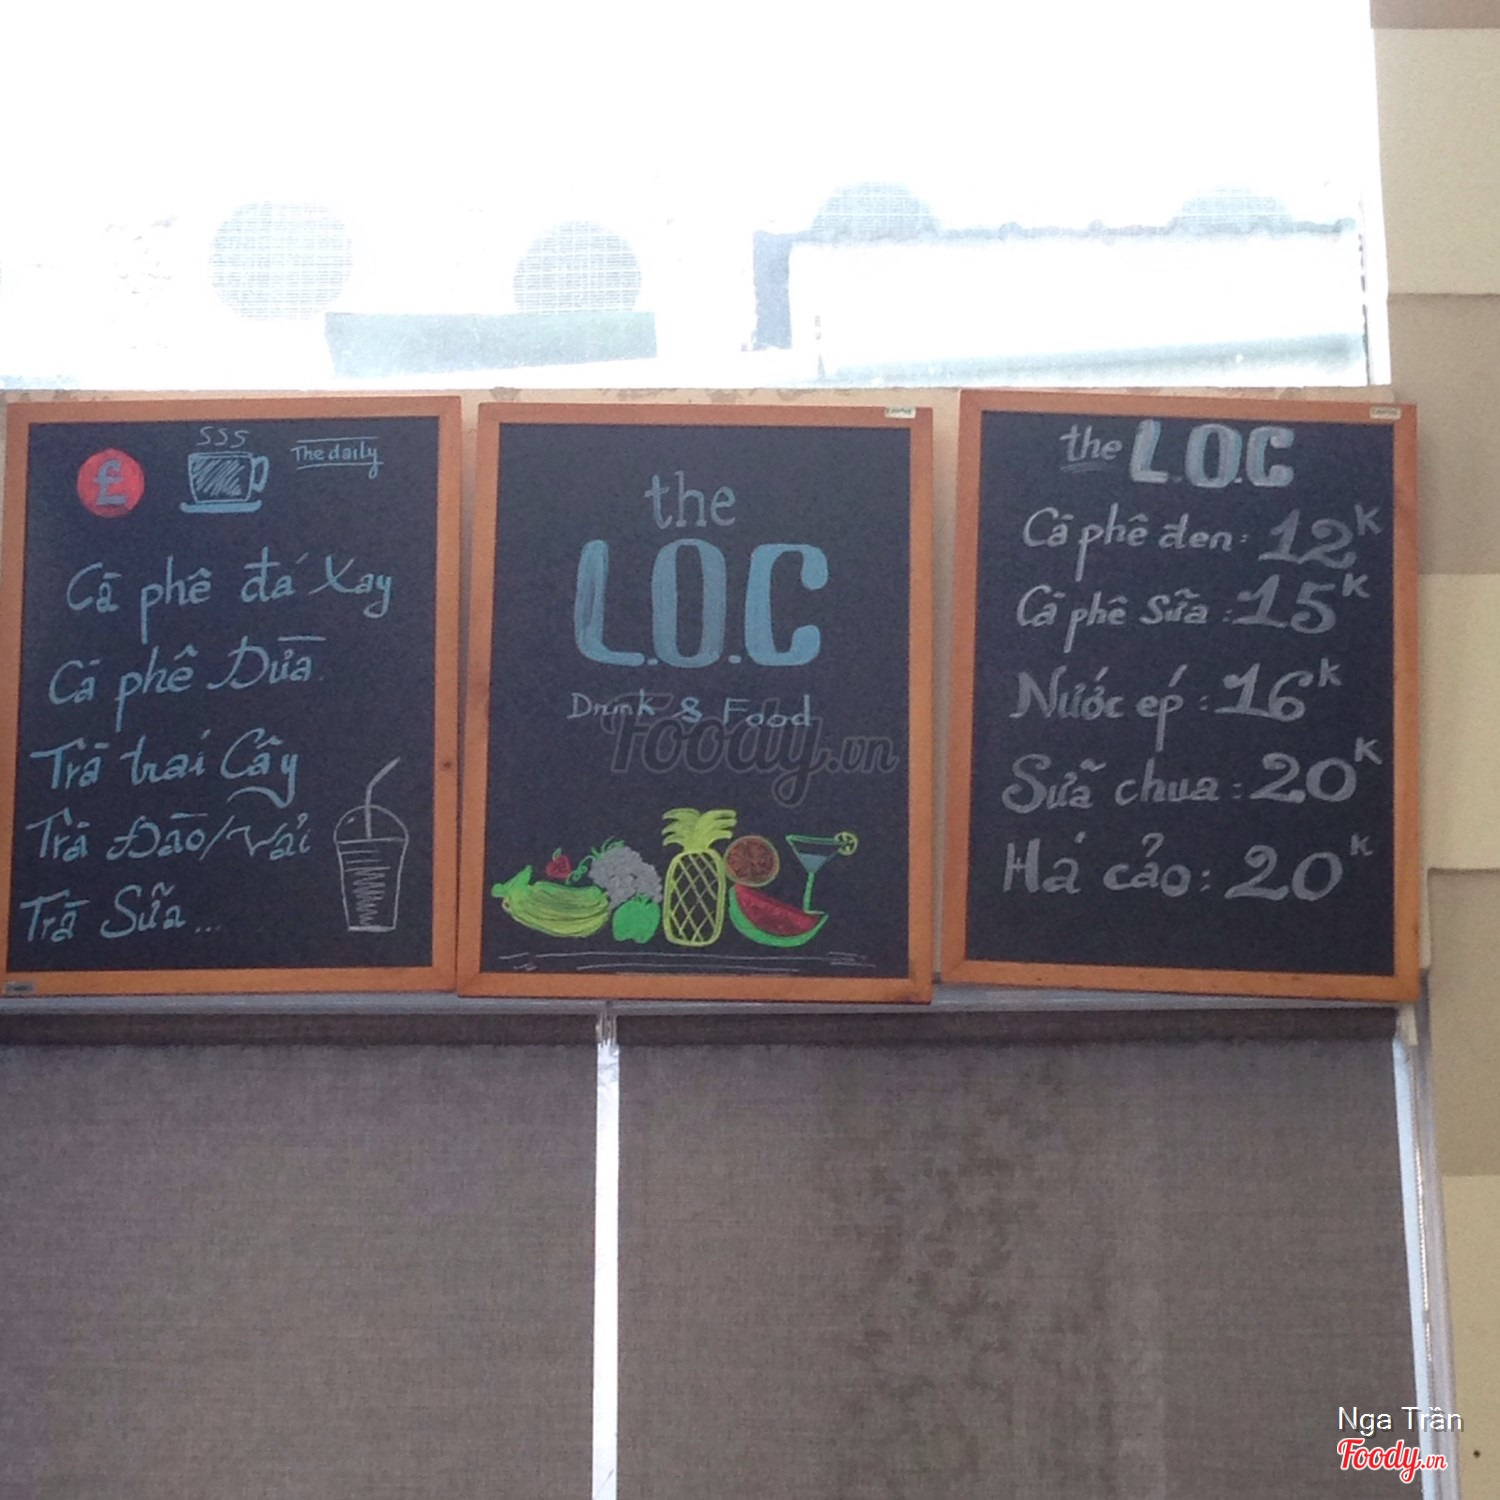 £
The daily
Cà phê đá Xay
Cà phê Dừa
Trà trái Cây
Trà Đào/Vải
Trà Sữa...
the
L.O.C
Drink & Food
Foody.vn
the L.O.C
Cà phê đen: 12K
Cà phê Sữa: 15K
Nước ép: 16K
Sữa chua: 20K
Há cảo: 20K
Nga Trần
Foody.vn